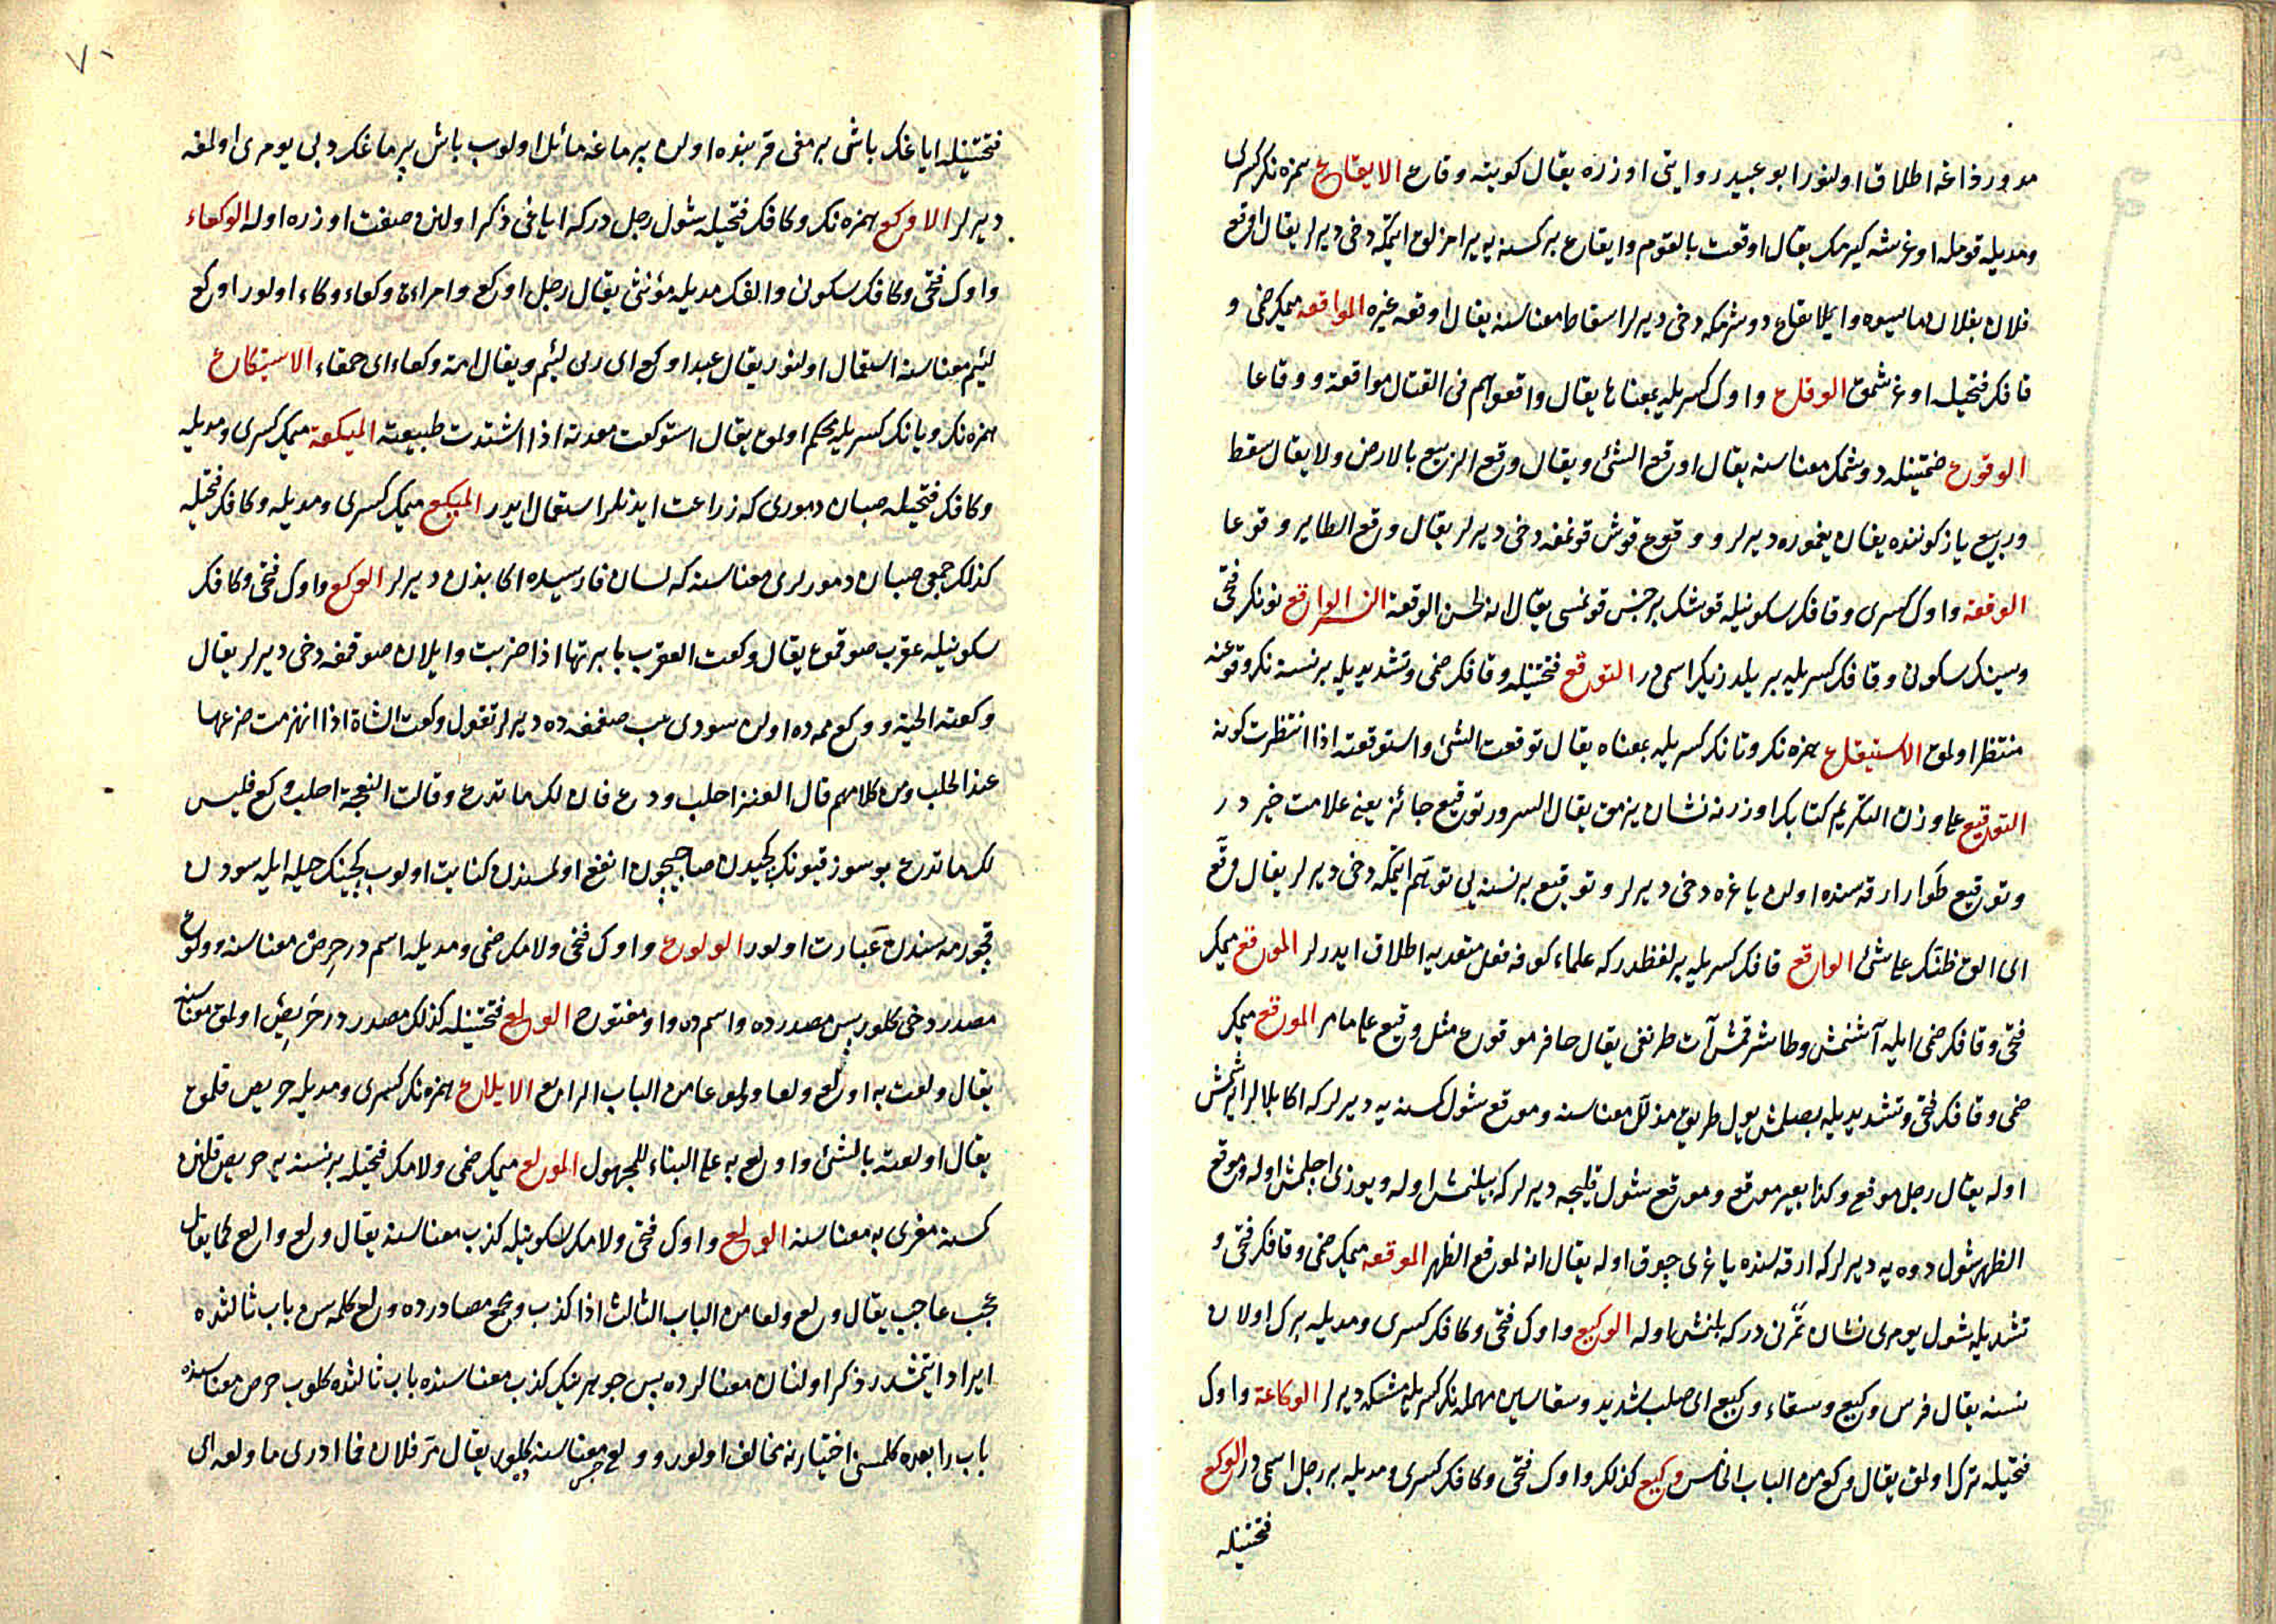 مدور داغه اطلاق اولنور ابو عبيد روايتى اوزره يقال كويته وقاع الايقاع همزه نك كسرى
ومديله قومله اوغرشه كيرمك يقال اوقعت بالقوم وايقاع بر كسنه يه يرامزلق ايتمكه دخى ديرلر يقال اوقع
فلان بفلان ما يسوه وايقاع دوشرمكه دخى ديرلر اسقاط معناسنه يقال اوقعه غيره المواقعه ميمك ضمى و
قافك فتحيله اوغرشمق الوقاع واوك كسريله بمعناها يقال واقعوهم فى القتال مواقعة ووقاعا
الوقوع ضمتينله دوشمك معناسنه يقال اوقع الشئ ويقال وقع الربيع بالارض ولا يقال سقط
وربيع ياز كوننده يغان يغموره ديرلر و وقوع قوش قونمغه دخى ديرلر يقال وقع الطاير وقوعا
الوقعة واوك كسرى وقافك سكونيله قوشك بر جنس قونمسى يقال انه لحسن الوقعة النسر الواقع نونك فتحى
وسينك سكونى وقافك كسريله بر يلدزك اسمى در التوقع فتحتينله وقافك ضمى وتشديديله بر نسنه نك وقوعنه
منتظر اولمق الاستيقاع همزه نك وتانك كسريله بمعناه يقال توقعت الشئ واستوقعته اذا انتظرت كونه
التوقيع على وزن التكريم كتابك اوزرنه نشان يزمق يقال السرور توقيع جائز يعنى علامت خير در
وتوقيع طوار ارقه سنده اولن ياغره دخى ديرلر وتوقيع بر نسنه يى توهم ايتمكه دخى ديرلر يقال وقع
اى الق ظنك على شئ الواقع قافك كسريله بر لفظدر كه علماء كوفه فعل متعديه اطلاق ايدرلر الموقع ميمك
فتحى وقافك ضمى ايله آشنمش وطاشرقمش آت طرنغى يقال حافر موقوع مثل وقيع على ما مر الموقع ميمك
ضمى وقافك فتحى وتشديديله بصلمش يول طريق مذلل معناسنه وموقع شول كسنه يه ديرلر كه اكا بلالر ايرشمش
اوله يقال رجل موقع وكذا بعير موقع وموقع شول قليجه ديرلر كه بيلنمش اوله ويوزى اچلمش اوله وموقع
الظهر شول دوه يه ديرلر كه ارقه سنده ياغرى چوق اوله يقال انه لموقع الظهر الموقعه ميمك ضمى وقافك فتحى و
تشديديله شول يومرى نشان در كه بلنمش اوله الوكيع واوك فتحى وكافك كسرى ومديله برك اولان
نسنه يقال فرس وكيع وسقاء وكيع اى صلب شديد وسقا سين مهمله نك كسريله مشكه ديرلر الوكاعة واوك
فتحيله برك اولمق يقال وكع من الباب الخامس وكيع كذلك واوك فتحى وكافك كسرى ومديله بر رجل اسمى در الوكع
فتحتينله
٧٠
فتحتينله اياغك باش پرمغى قربنده اولن پرماغه مائل اولوب باش پرماغك دبى يومرى اولمغه
ديرلر الاوكع همزه نك وكافك فتحيله شول رجل در كه اياغى ذكر اولنن صفت اوزره اوله الوكعاء
واوك فتحى وكافك سكونى والفك مديله مؤنثى يقال رجل اوكع وامراءة وكعاء وكاه اولور اوكع
لئيم معناسنه استعمال اولنور يقال عبد اوكع اى لئيم ويقال امة وكعاء اى حمقاء الاستيكاع
همزه نك ويانك كسريله محكم اولمق يقال استوكعت معدته اذا اشتدت طبيعته الميكعة ميمك كسرى ومديله
وكافك فتحيله صبان دمورى كه زراعت ايدنلر استعمال ايدر الميكع ميمك كسرى ومديله وكافك فتحيله
كذلك جمعى صبان دمورلرى معناسنه كه لسان فارسيده اكا ديرلر الوكع واوك فتحى وكافك
سكونيله عقرب صوقمق يقال وكعت العقرب بابرتها اذا ضربت وايلان صوقمغه دخى ديرلر يقال
وكعته الحية و وكع ممه ده اولن سودى صغمغه ده ديرلر تقول وكعت الشاة اذا انهزمت ضرعها
عند الحلب ومن كلامهم قال العنز احلب ودع فان لك ما تدع وقالت النعجة احلب وكع فليس
لك ما تدع بو سوز قيونك كچيدن صاغيچون انفع اولمسندن كنايت اولوب كچينك حيله ايله سودن
قچورمه سندن عبارت اولور الولوع واوك فتحى ولامك ضمى ومديله اسم در حرص معناسنه وولوع
مصدر دخى كلور پس مصدرده واسم ده واو مفتوح الولع فتحتينله كذلك مصدر در حريص اولمق معناسنه
يقال ولعت به اولع ولعا وولوعا من الباب الرابع الايلاع همزه نك كسرى ومديله حريص قلمق
يقال اولعته بالشئ واولع به على البناء للمجهول المولع ميمك ضمى ولامك فتحيله بر نسنه يه حريص قلنن
كسنه مغرى به معناسنه الولع واوك فتحى ولامك سكونيله كذب معناسنه يقال ولع والع كما يقال
عجب عاجب يقال ولع ولعا من الباب الثالث اذا كذب مصادرده ولع كلمه سن باب ثالثده
ايراد ايتمشدر ذكر اولنان معنالرده پس جوهرينك كذب معناسنده باب ثالثده كلوب حرص معناسنده
باب رابعده كلمسنى اختيارنه مخالف اولور و ولع حبس معناسنه كلور يقال مر فلان فما ادرى ما ولعه اى